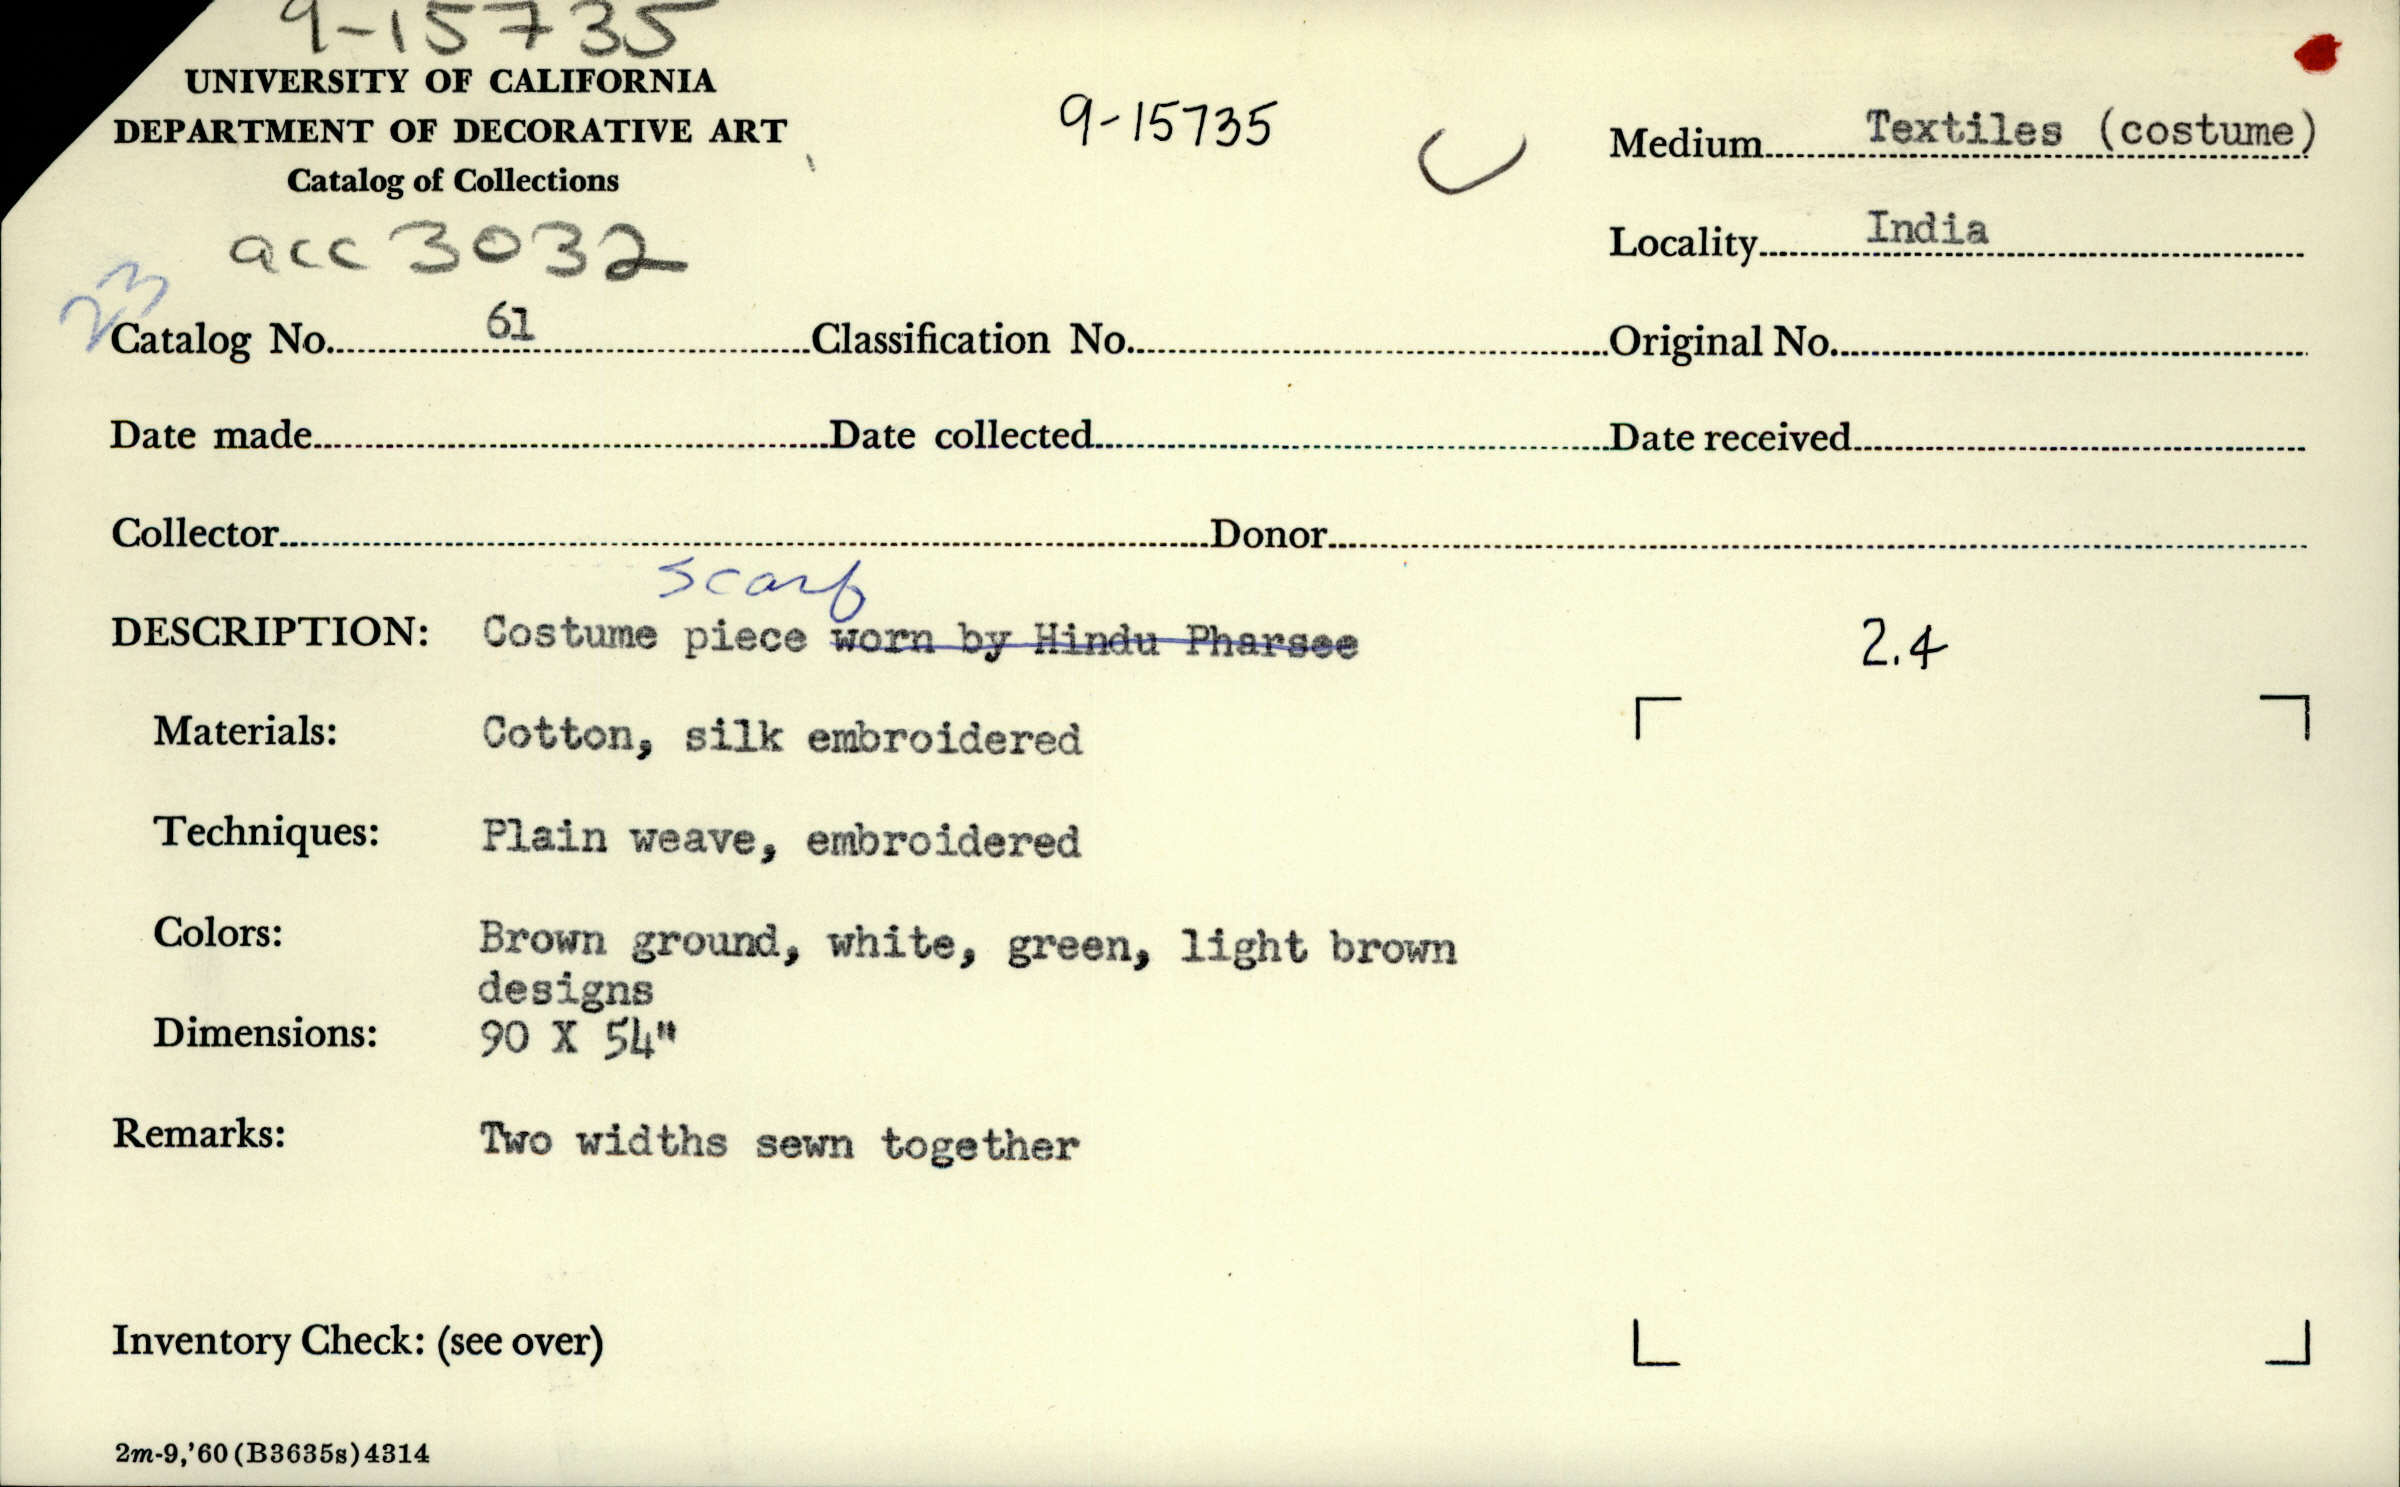 9-15735
UNIVERSITY OF CALIFORNIA
DEPARTMENT OF DECORATIVE ART
Catalog of Collections
9-15735
C
Medium Textiles (costume)
acc 3032
Locality India
23
Catalog No. 61 Classification No. Original No.
Date made Date collected Date received
Collector Donor
scarf
DESCRIPTION: Costume piece worn by Hindu Pharsee
2.4
Materials: Cotton, silk embroidered
Techniques: Plain weave, embroidered
Colors: Brown ground, white, green, light brown
designs
Dimensions: 90 X 54"
Remarks: Two widths sewn together
Inventory Check: (see over)
2m-9,'60(B3635s)4314